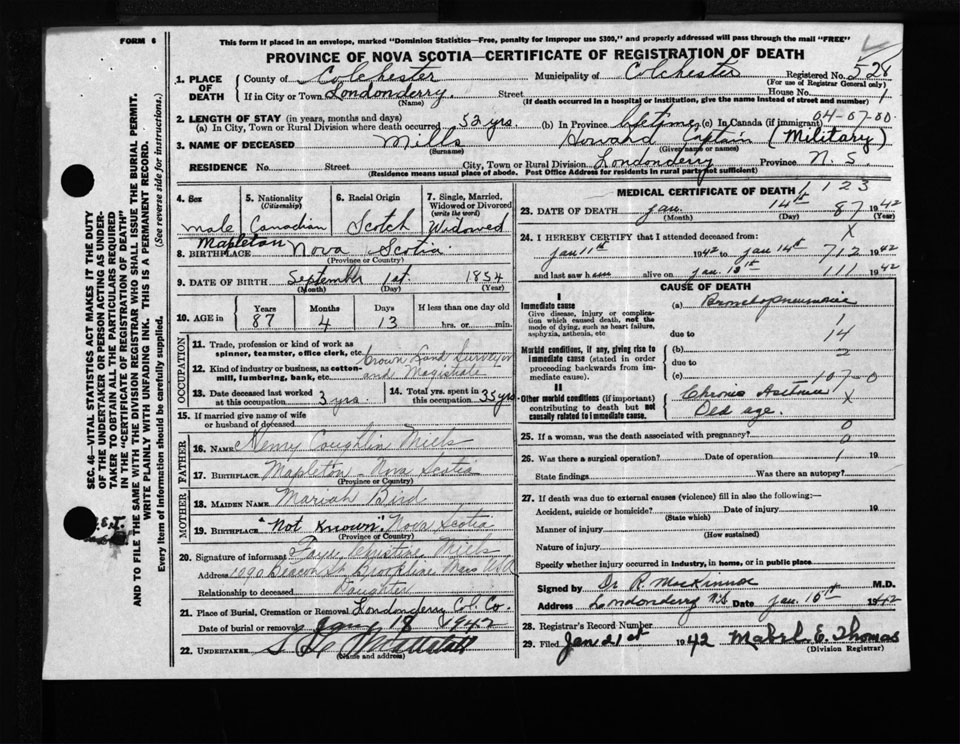 FORM 6
This form if placed in an envelope, marked "Dominion Statistics—Free, penalty for improper use $300," and properly addressed will pass through the mail "FREE"
PROVINCE OF NOVA SCOTIA—CERTIFICATE OF REGISTRATION OF DEATH
1. PLACE OF DEATH County of Colchester Municipality of Colchester Registered No. 528
(For use of Registrar General only)
If in City or Town Londonderry. Street House No. 1
(Name) (If death occurred in a hospital or institution, give the name instead of street and number)
2. LENGTH OF STAY (in years, months and days) 04-07-00.
(a) In City, Town or Rural Division where death occurred 52 yrs. (b) In Province Lifetime (c) In Canada (if immigrant)
3. NAME OF DECEASED Mills Howard Captain (Military)
(Surname) (Given name or names)
RESIDENCE No. Street City, Town or Rural Division Londonderry Province N. S.
(Residence means usual place of abode. Post Office Address for residents in rural parts not sufficient)
SEC. 46—VITAL STATISTICS ACT MAKES IT THE DUTY
OF THE UNDERTAKER OR PERSON ACTING AS UNDER-
TAKER TO OBTAIN ALL THE PARTICULARS REQUIRED
IN THE "CERTIFICATE OF REGISTRATION OF DEATH"
AND TO FILE THE SAME WITH THE DIVISION REGISTRAR WHO SHALL ISSUE THE BURIAL PERMIT.
WRITE PLAINLY WITH UNFADING INK. THIS IS A PERMANENT RECORD.
Every item of information should be carefully supplied. (See reverse side for instructions.)
4. Sex
male
5. Nationality
(Citizenship)
Canadian
6. Racial Origin
Scotch
7. Single, Married,
Widowed or Divorced
(write the word)
Widowed
8. BIRTHPLACE Mapleton Nova Scotia
(Province or Country)
9. DATE OF BIRTH September 1st. 1854
(Month) (Day) (Year)
10. AGE in Years Months Days If less than one day
87 4 13 hrs. or min.
OCCUPATION
11. Trade, profession or kind of work as
spinner, teamster, office clerk, etc. Crown Land Surveyor
12. Kind of industry or business, as cotton-
mill, lumbering, bank, etc. and Magistrate
13. Date deceased last worked
at this occupation 3 yrs.
14. Total yrs. spent in
this occupation 35 yrs
15. If married give name of wife
or husband of deceased
FATHER
16. NAME Henry Coughlin Mills
17. BIRTHPLACE Mapleton - Nova Scotia
(Province or Country)
MOTHER
18. MAIDEN NAME Mariah Bird
19. BIRTHPLACE "Not Known". Nova Scotia
(Province or Country)
20. Signature of informant Christine Mills
Address 1090 Beacon St. Brookline Mass USA
Relationship to deceased Daughter
21. Place of Burial, Cremation or Removal Londonderry Col. Co.
Date of burial or removal Jany 18 1942
22. UNDERTAKER
(Name and address)
MEDICAL CERTIFICATE OF DEATH 1 1 2 3
23. DATE OF DEATH Jan. 14th 87 1942
(Month) (Day) (Year)
X
24. I HEREBY CERTIFY that I attended deceased from:
Jan 11th 1942 to Jan 14th 712 1942
and last saw him alive on Jan. 13th 111 1942
CAUSE OF DEATH
I
Immediate cause
Give disease, injury or complica-
tion which caused death, not the
mode of dying, such as heart failure,
asphyxia, asthenia, etc
(a) Bronchopneumonia
1
due to 14
Morbid conditions, if any, giving rise to
immediate cause (stated in order
proceeding backwards from im-
mediate cause).
(b)
due to
(c) 107-0
II
Other morbid conditions (if important)
contributing to death but not
causally related to immediate cause.
Chronic X
Old age.
0
25. If a woman, was the death associated with pregnancy? 0
26. Was there a surgical operation? Date of operation 1 19
State findings Was there an autopsy?
27. If death was due to external causes (violence) fill in also the following:—
Accident, suicide or homicide? Date of injury 19
(State which)
Manner of injury
(How sustained)
Nature of injury
Specify whether injury occurred in industry, in home, or in public place
Signed by Dr R. MacKinnon M.D.
Address Londonderry N.S. Date Jan. 1942
28. Registrar's Record Number
29. Filed Jan 21st 1942 Mabel E. Thomas
(Division Registrar)